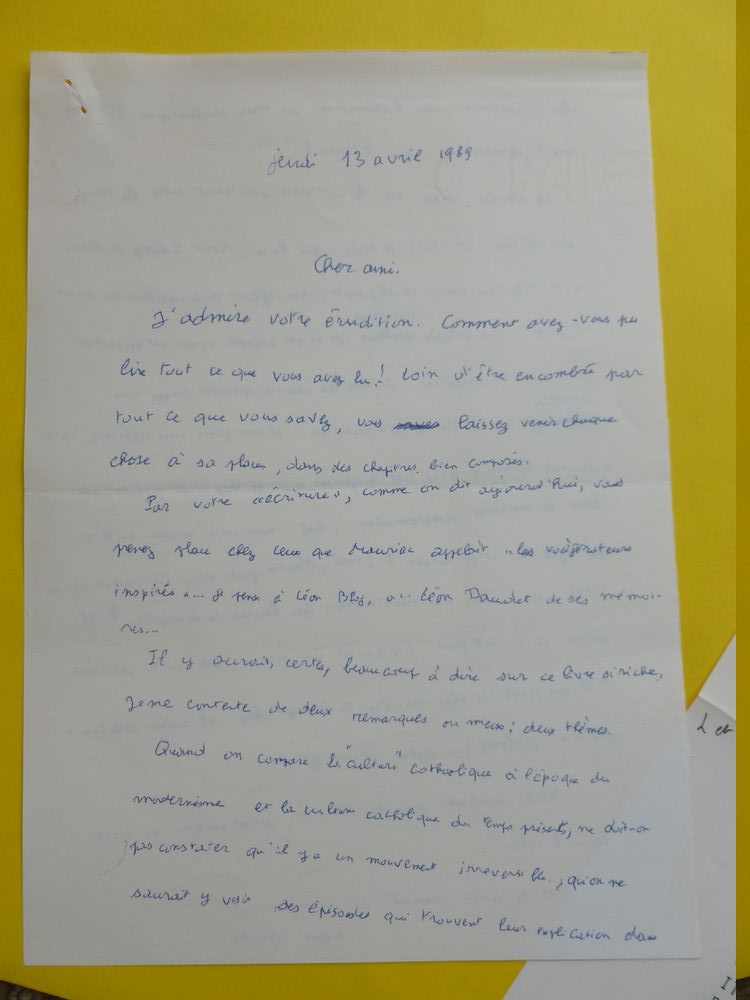 jeudi 13 avril 1989
Cher ami.
J'admire votre érudition. Comment avez-vous pu
lire tout ce que vous avez lu! Loin d'être encombré par
tout ce que vous savez, vous laissez venir chaque
chose à sa place, dans des chapitres bien composés.
Par votre "écriture", comme on dit aujourd'hui, vous
prenez place chez ceux que Mauriac appelait "les vociférateurs
inspirés"... je pense à Léon Bloy, au Léon Daudet de ses mémoi-
res...
Il y aurait, certes, beaucoup à dire sur ce livre si riche,
Je me contente de deux remarques ou mieux: deux thèmes.
Quand on compare la "culture" catholique à l'époque du
modernisme et la culture catholique du temps présent, ne doit-on
pas constater qu'il y a un mouvement irréversible, qu'on ne
saurait y voir des épisodes qui trouvent leur explication dans
L et